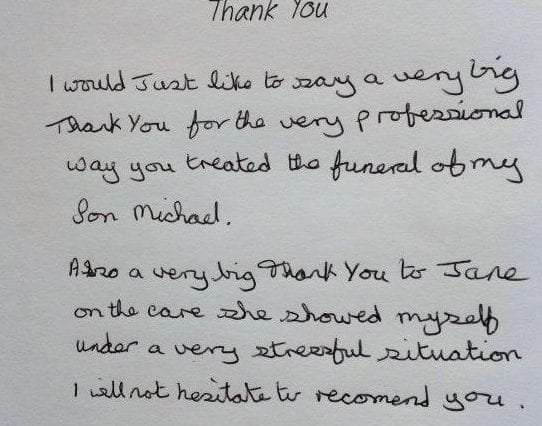 Thank You
I would Just like to say a very big
Thank You for the very professional
way you treated the funeral of my
Son Michael.
Also a very big Thank You to Jane
on the care she showed myself
under a very stressful situation
I will not hesitate to recomend you.